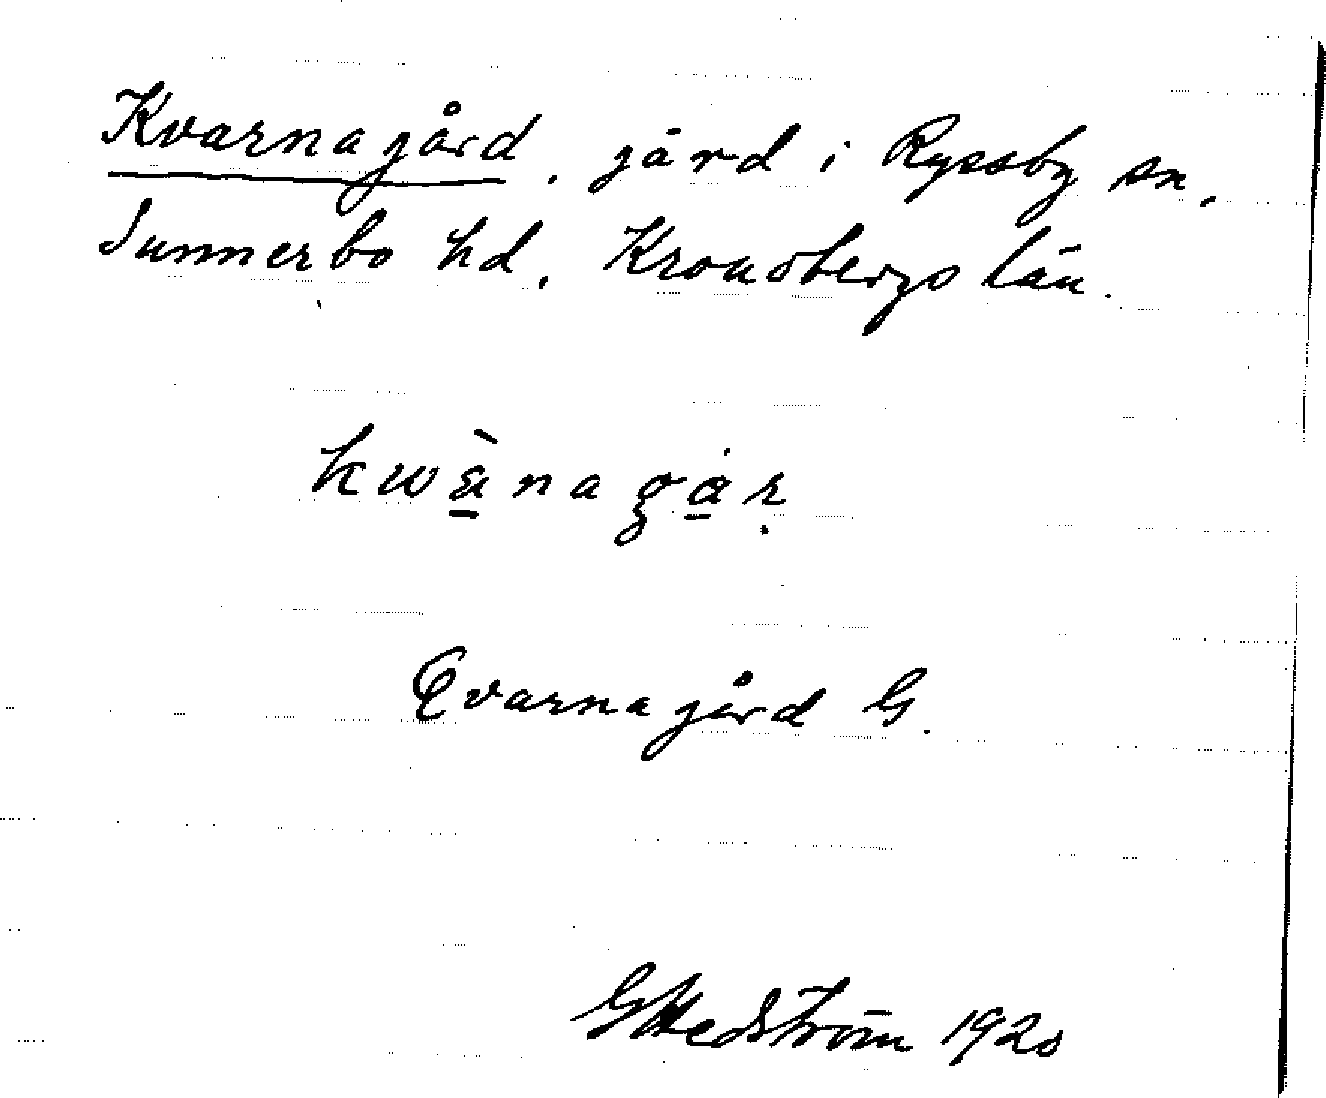 Kvarnagård, gård i Ryssby sn,
Sunnerbo hd, Kronobergs län.
kwànagår
Qvarnagård G.
G Hedström 1920